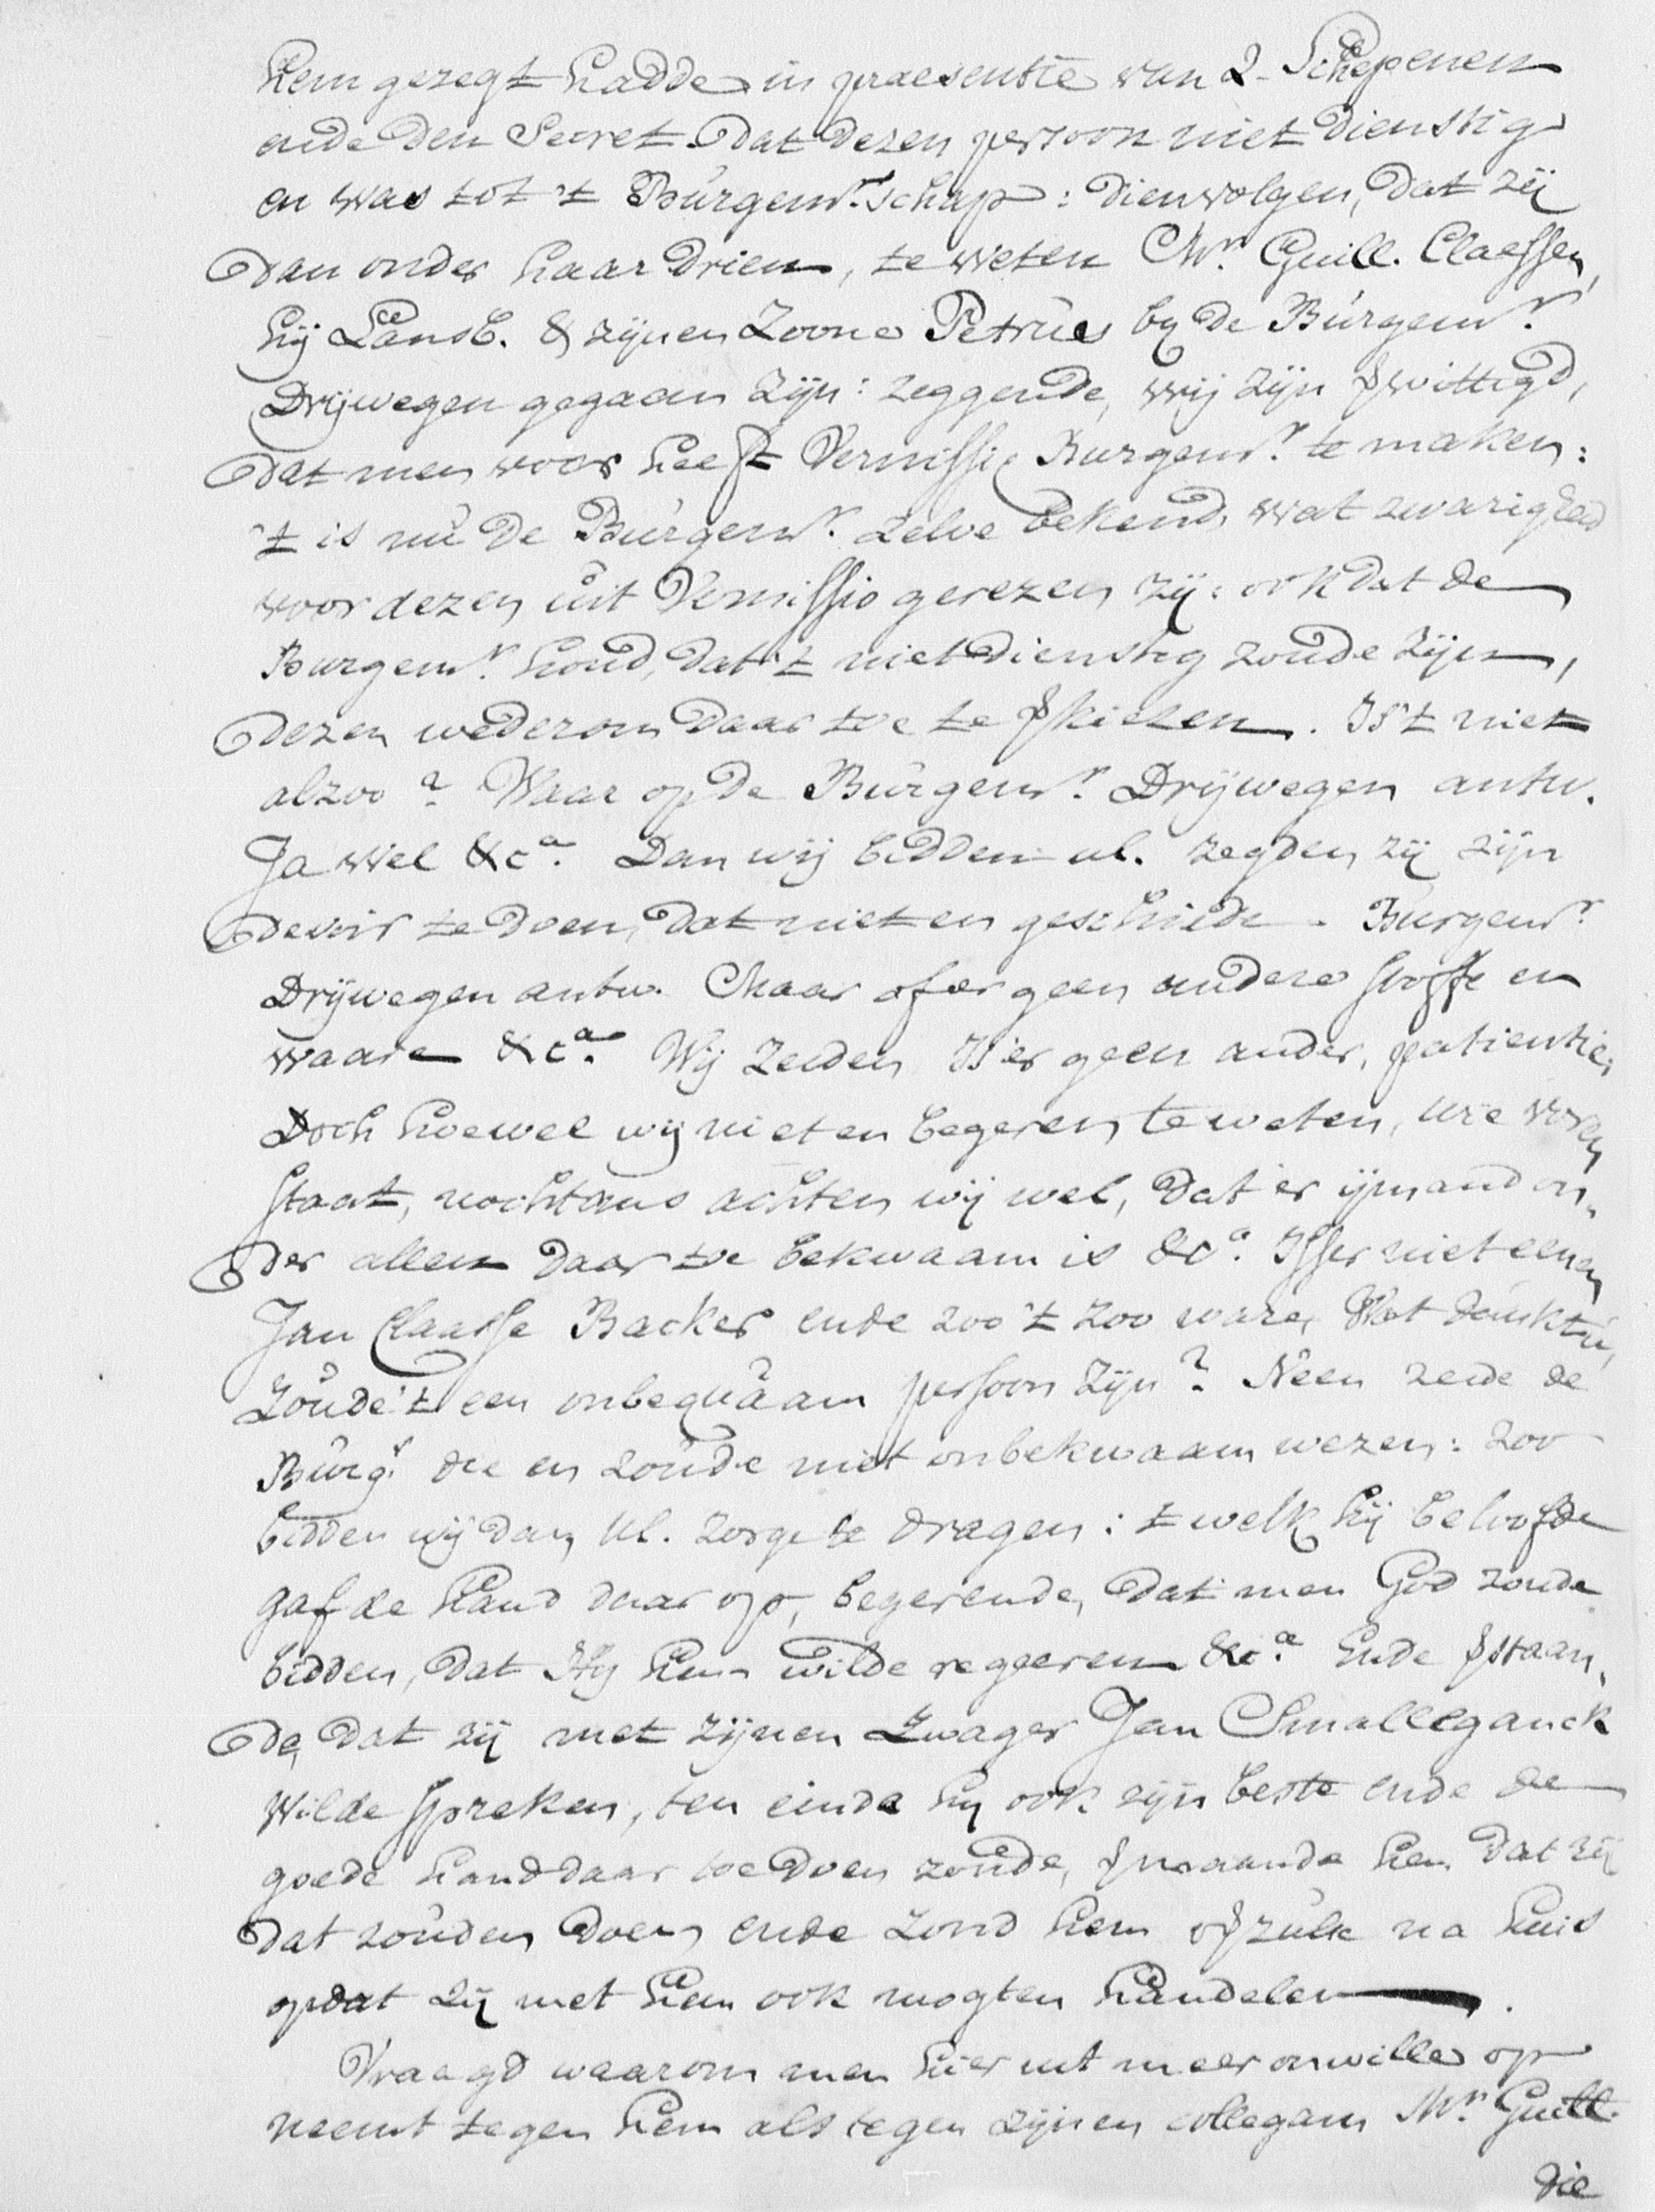 hem gezegt hadde in praesentie van 2 Schepenen
ende den Secret. dat dezen persoon niet dienstig
en was tot 't Burgemr.schap: dienvolgen, dat zij
dan onder haar drien, te weten Mr. Guill. Claessen,
hij Lansb. & zijnen Zoone Petrus by de Burgemr.
Drijwegen gegaan zijn: zeggende, wij zijn verwittigd,
dat men voor heeft Vernissie Burgemr. te maken:
't is nu de Burgemr. zelve bekend, wat zwarigheid
voor dezen uit Vernissie gerezen zij: ook dat de
Burgemr. houd, dat 't niet dienstig zoude zijn,
dezen wederom daar toe te verkiezen. Is 't niet
alzoo? Waar op de Burgemr. Drijwegen antw.
Ja wel &ca. Dan wij bidden ul. zegden zij zijn
devoir te doen, dat niet en geschiede. Burgemr.
Drijwegen antw. Maar of er geen andere stoffe en
waare &ca. Wij zeiden Is er geen ander, patientie,
Doch hoewel wij niet en begeren te weten, wie voren
staat, nochtans achten wij wel, dat er ijmand on-
der allen daar toe bekwaam is &ca. Isser niet eenen
Jan Claasse Backer ende zoo 't zoo ware, Wat dunkt u,
Zoude 't een onbequaam persoon zijn? Neen zeide de
Burgr. die en zoude niet onbekwaam wezen: zoo
bidden wij dan Ul. zorge te dragen: 't welk hij beloofde
gaf de hand daar op, begerende, dat men God zoude
bidden, dat Hij hem wilde reggeren &ca. Ende verstaan-
de, dat zij met zijnen Zwager Jan Smalleganck
wilde spreken, ten einde hij ook zijn beste ende de
goede hand daar toe doen zoude, vermaande hen dat zij
dat zouden doen ende zond hem op zulk na huis
opdat zij met hem ook mogten handelen.
Vraagd waarom men hier uit meer onwille op
neemt tegen hem als tegen zijnen collegam Mr. Guill.
die